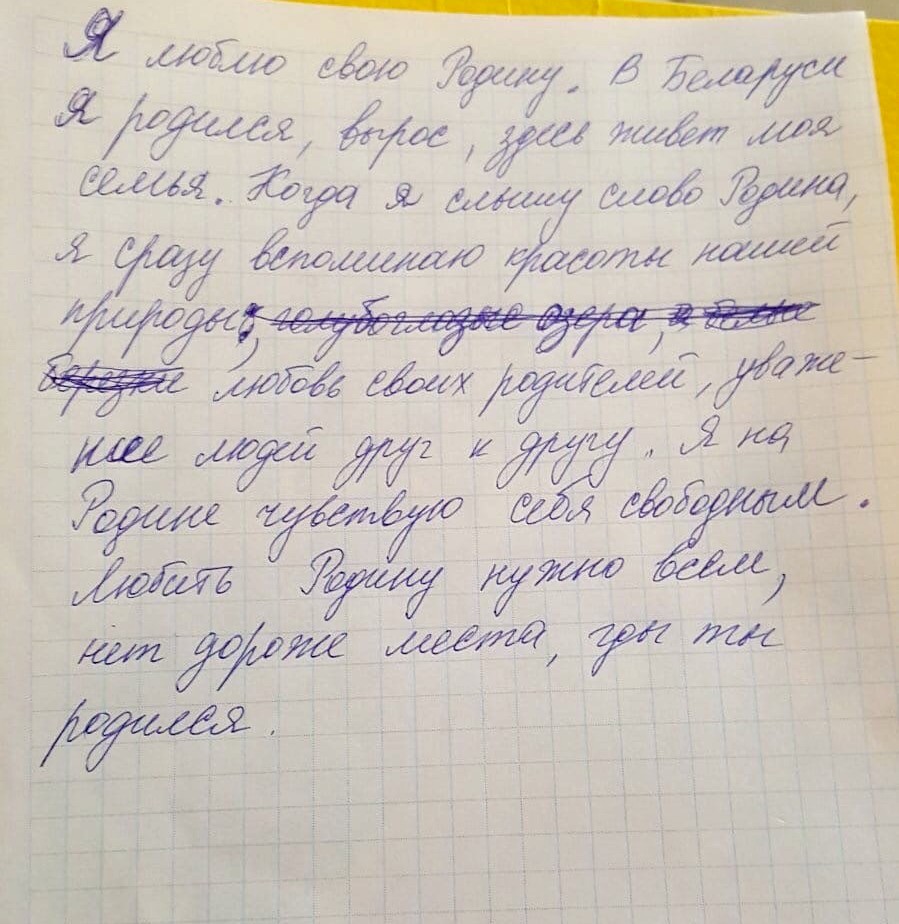 Я люблю свою Родину. В Беларуси
Я родился, вырос, здесь живет моя
семья. Когда я слышу слово Родина,
я сразу вспоминаю красоты нашей
природы, голубоглазые озера, и белые
березки любовь своих родителей, уваже-
ние людей друг к другу. Я на
Родине чувствую себя свободным.
Любить Родину нужно всем,
нет дороже места, гды ты
родился.